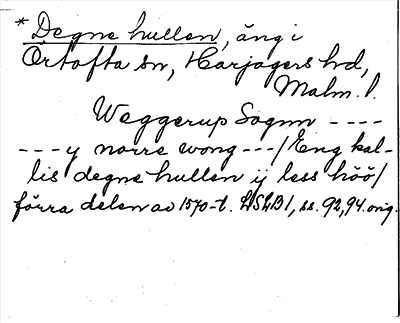 * Degne hullen, äng i
Örtofta sn, Harjagers hd,
Malm. l.
Weggerup Sognn ----
--- y norre wong ---/Eng kal-
lis degne hullen ij less höö/
förra delen av 1570-t. LSLB1, ss. 92, 94. orig.